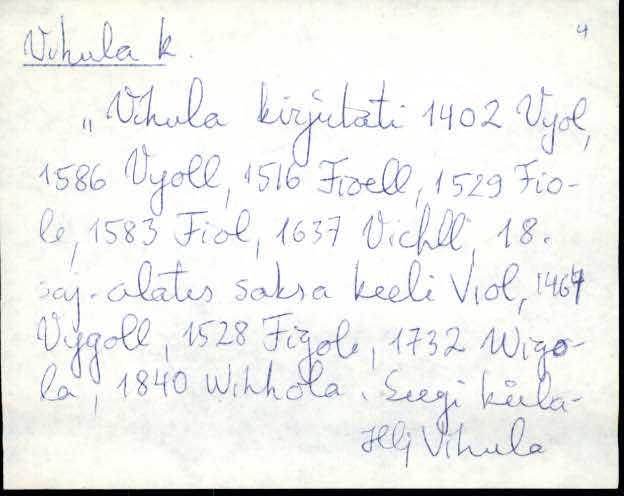 4
Vihula k.
„Vihula kirjutati 1402 Vyol,
1586 Vyoll, 1516 Fioell, 1529 Fio-
le, 1583 Fiol, 1637 Vichll, 18.
saj. alates saksa keeli Viol, 1467
Vygoll, 1528 Figole, 1732 Wigo-
la, 1840 Wihhola. Seegi küla-
Hlj Vihula